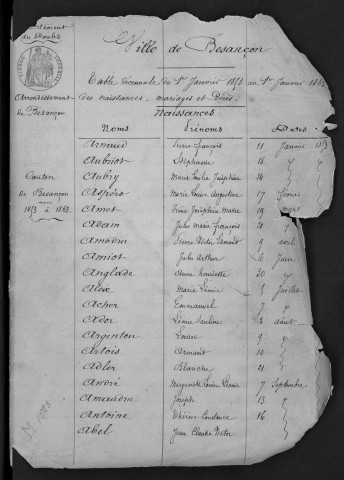 Département
du Doubs
Arrondissement
de Besançon
Canton
de Besançon
1853 à 1863
Ville de Besançon
Table décennale du 1er Janvier 1853 au 1er Janvier 1863
des naissances, mariages et Décès.
Naissances
Noms Prénoms Dates
Arnaud Pierre François 11 Janvier 1853
Aubriot Stéphanie 18 "
Aubry Marie Joséphine 24 "
Aspéro Marie Louise Augustine 17 février
Amet Irène Joséphine Marie 19 mars
Adam Jules Marie François 21 "
Amédru Pierre Victor 9 avril
Amiot Jules Arthur 6 Juin
Anglade Anne Henriette 30 "
Alex Marie Léonie 5 Juillet
Acher Emmanuel 7 "
Ador Léonie Pauline 2 août
Argenton Louise 9 "
Artois Armand 10 "
Adler Blanche 21 "
André Marguerite Louise 7 Septembre
Ameaudru Joseph 13 "
Antoine Thérèse Constance 16 "
Abel Jean Claude Victor